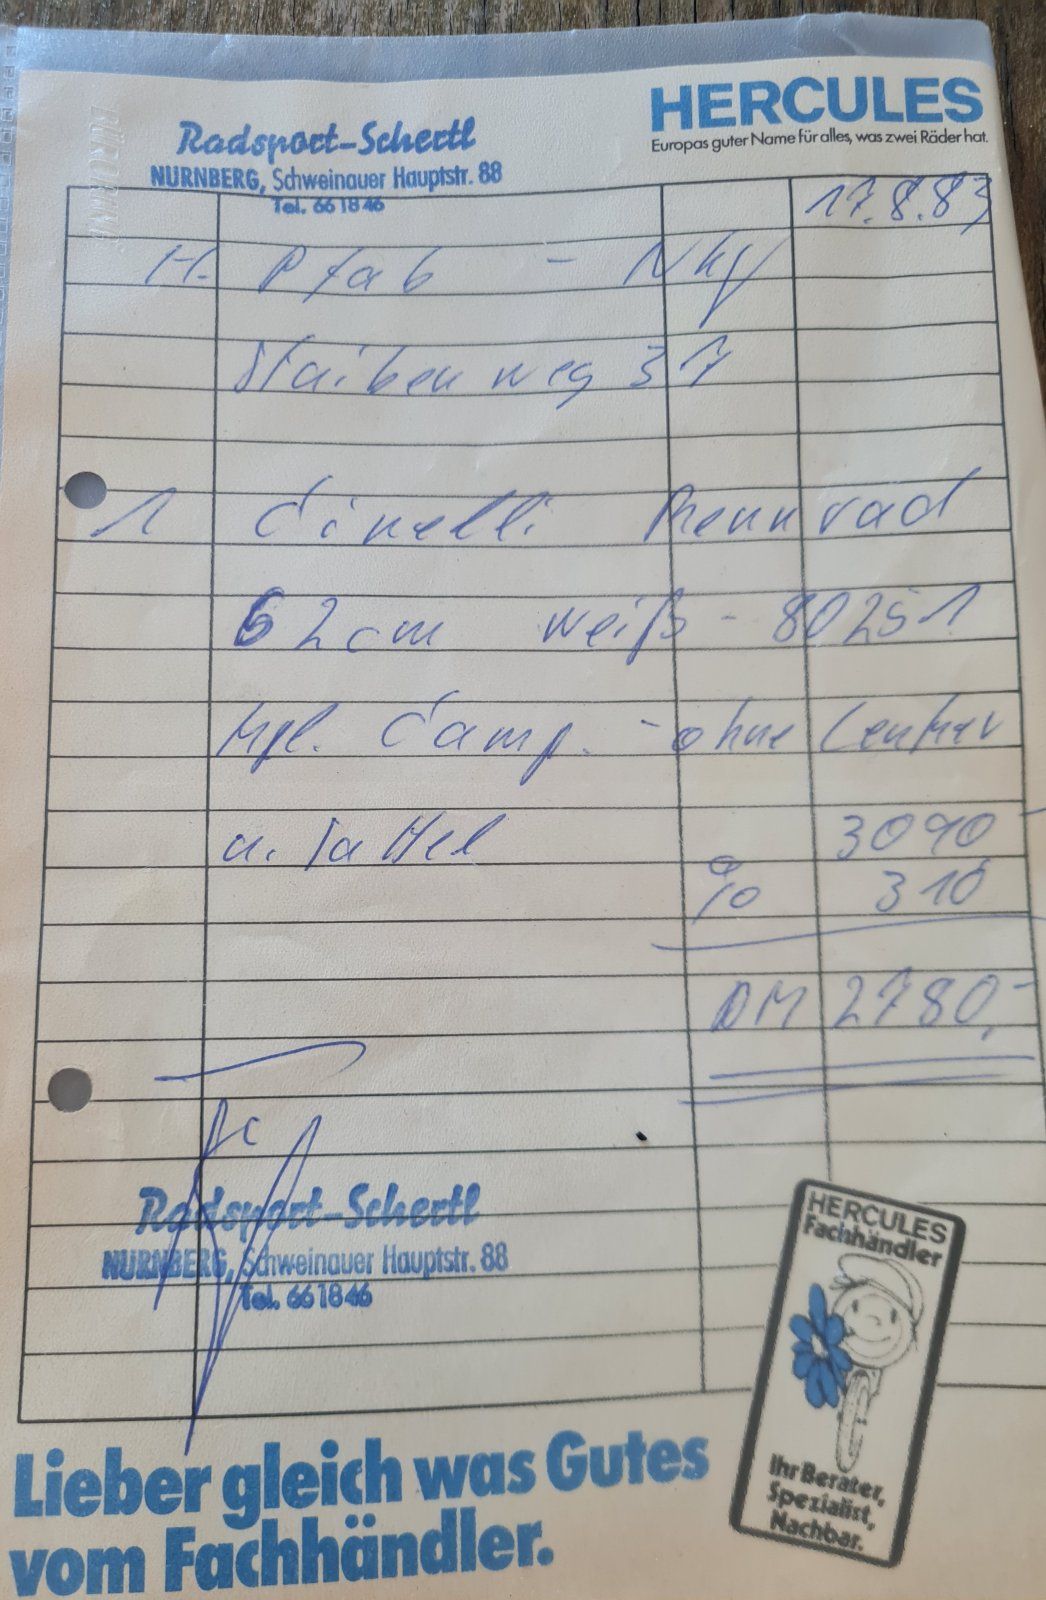 HERCULES
Europas guter Name für alles, was zwei Räder hat.
Radsport-Schertl
NÜRNBERG, Schweinauer Hauptstr. 88
Tel. 66 18 46
17.8.83
H. Pfab - Nbg
weg 37
1 Cinelli Rennrad
62 cm weiß - 80251
kpl. Camp. - ohne Lenker
u. Sattel 3090
% 310
DM 2780,-
Radsport-Schertl
NÜRNBERG, Schweinauer Hauptstr. 88
Tel. 66 18 46
HERCULES
Fachhändler
Ihr Berater,
Spezialist,
Nachbar.
Lieber gleich was Gutes
vom Fachhändler.